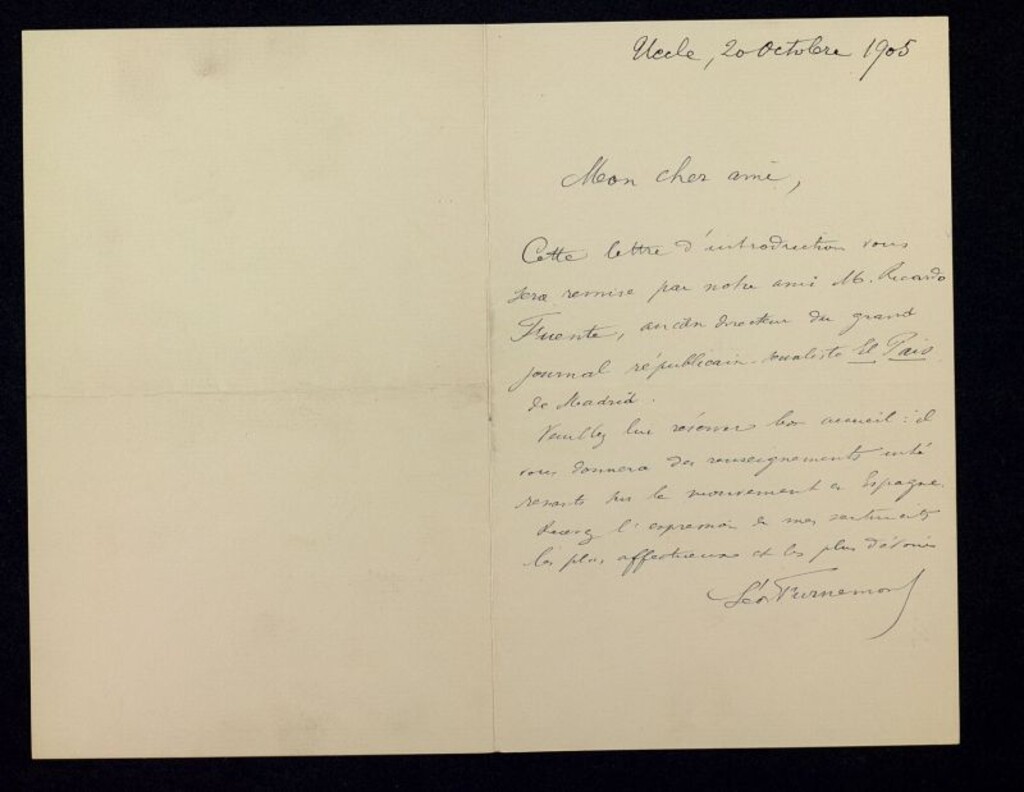 Uccle, 20 Octobre 1905
Mon cher ami,
Cette lettre d'introduction vous
sera remise par notre ami M. Ricardo
Fuente, ancien directeur du grand
journal républicain-socialiste El Pais
de Madrid.
Veuillez lui réserver bon accueil : il
vous donnera des renseignements inté
ressants sur le mouvement en Espagne.
Recevez l'expression de mes sentiments
les plus affectueux et les plus dévoués
Léon Furnemont